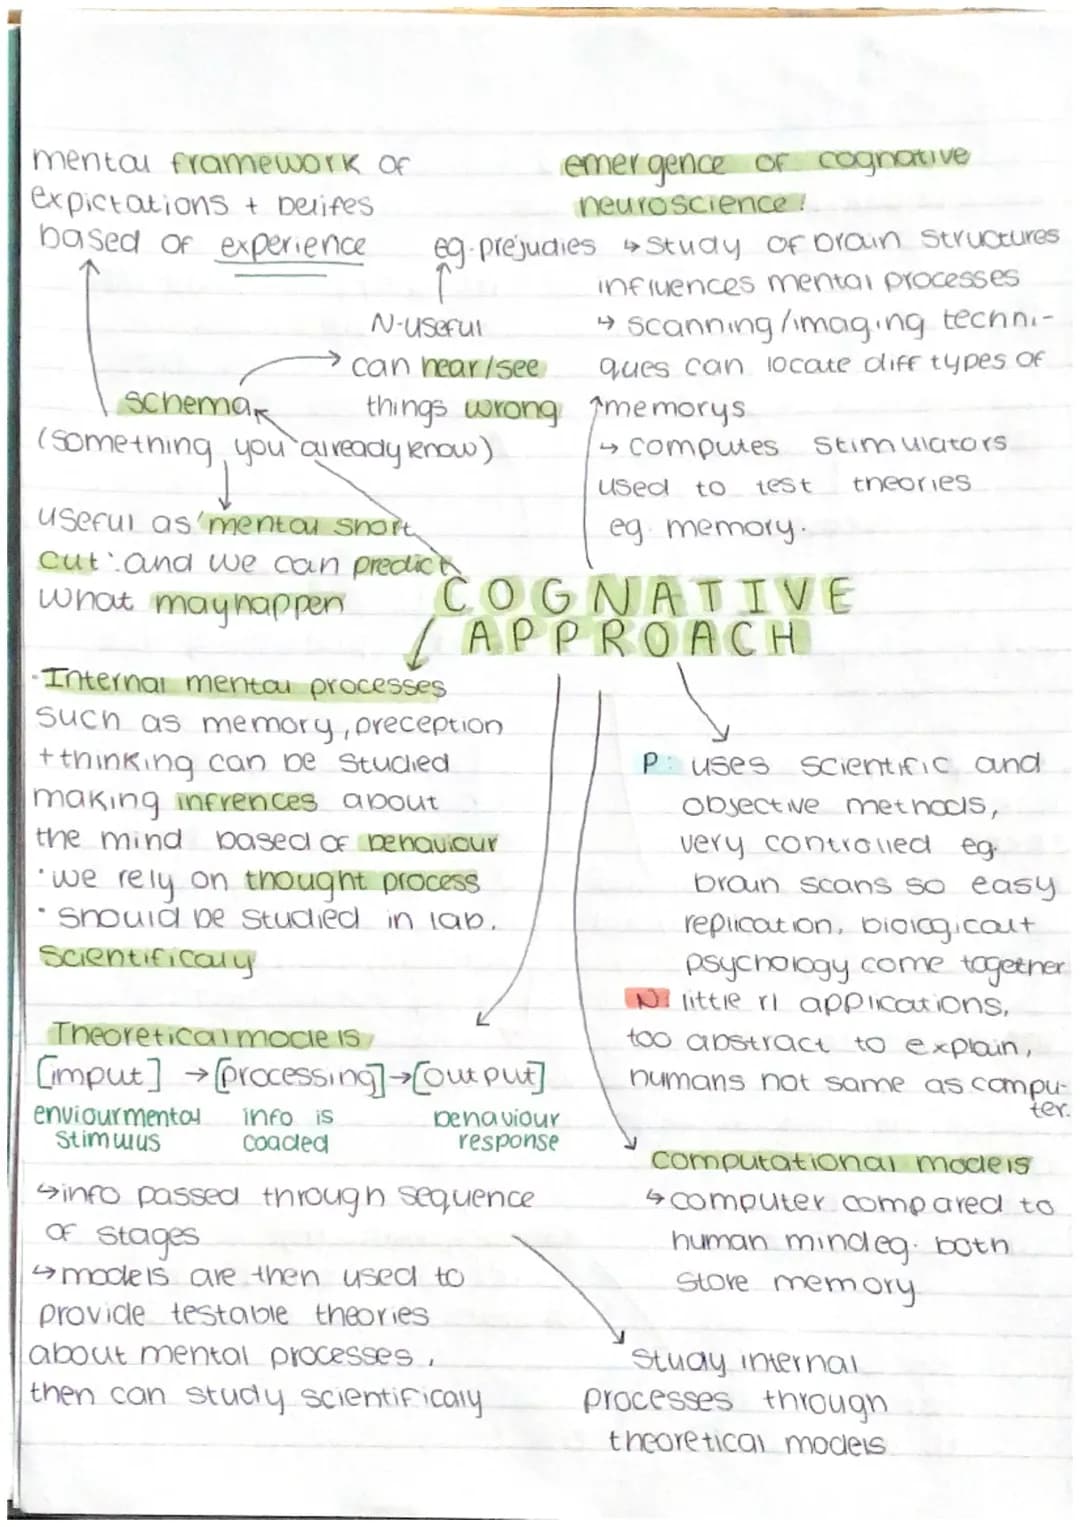 mental framework of
expictations + beliefes
based of experience
emergence of cognative
neuroscience:
eg. prejudies
↳ study of brain structures
influences mental processes
↳ scanning/imaging techni-
ques can locate diff types of
memorys
↳ computes stimulators
used to test theories
eg. memory.
N-useful
can hear/see
things wrong
schema
(something you already know)
useful as 'mental short
cut' and we can predict
what may happen
COGNATIVE
APPROACH
· Internal mental processes
such as memory, preception
+ thinking can be studied
making infrences about
the mind based of behaviour
· we rely on thought process
· should be studied in lab.
scientificaly
P: uses scientific and
objective methods,
very controlled eg.
brain scans so easy
replication, biological +
psychology come together
N: little rl applications,
too abstract to explain,
humans not same as compu-
ter.
Theoretical models
[imput] → [processing] → [output]
enviourmental info is behaviour
stimulus coaded response
↳ info passed through sequence
of stages
↳ models are then used to
provide testable theories
about mental processes,
then can study scientificaly
computational models
↳ computer compared to
human mind eg. both
store memory
study internal
processes through
theoretical models